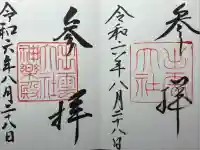 参拝
出雲大社
令和六年八月二十八日
参拝
出雲大社
神楽殿
令和六年八月二十八日